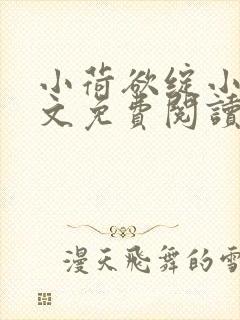 小荷欲绽小
文免費閱讀
漫天飛舞的雪